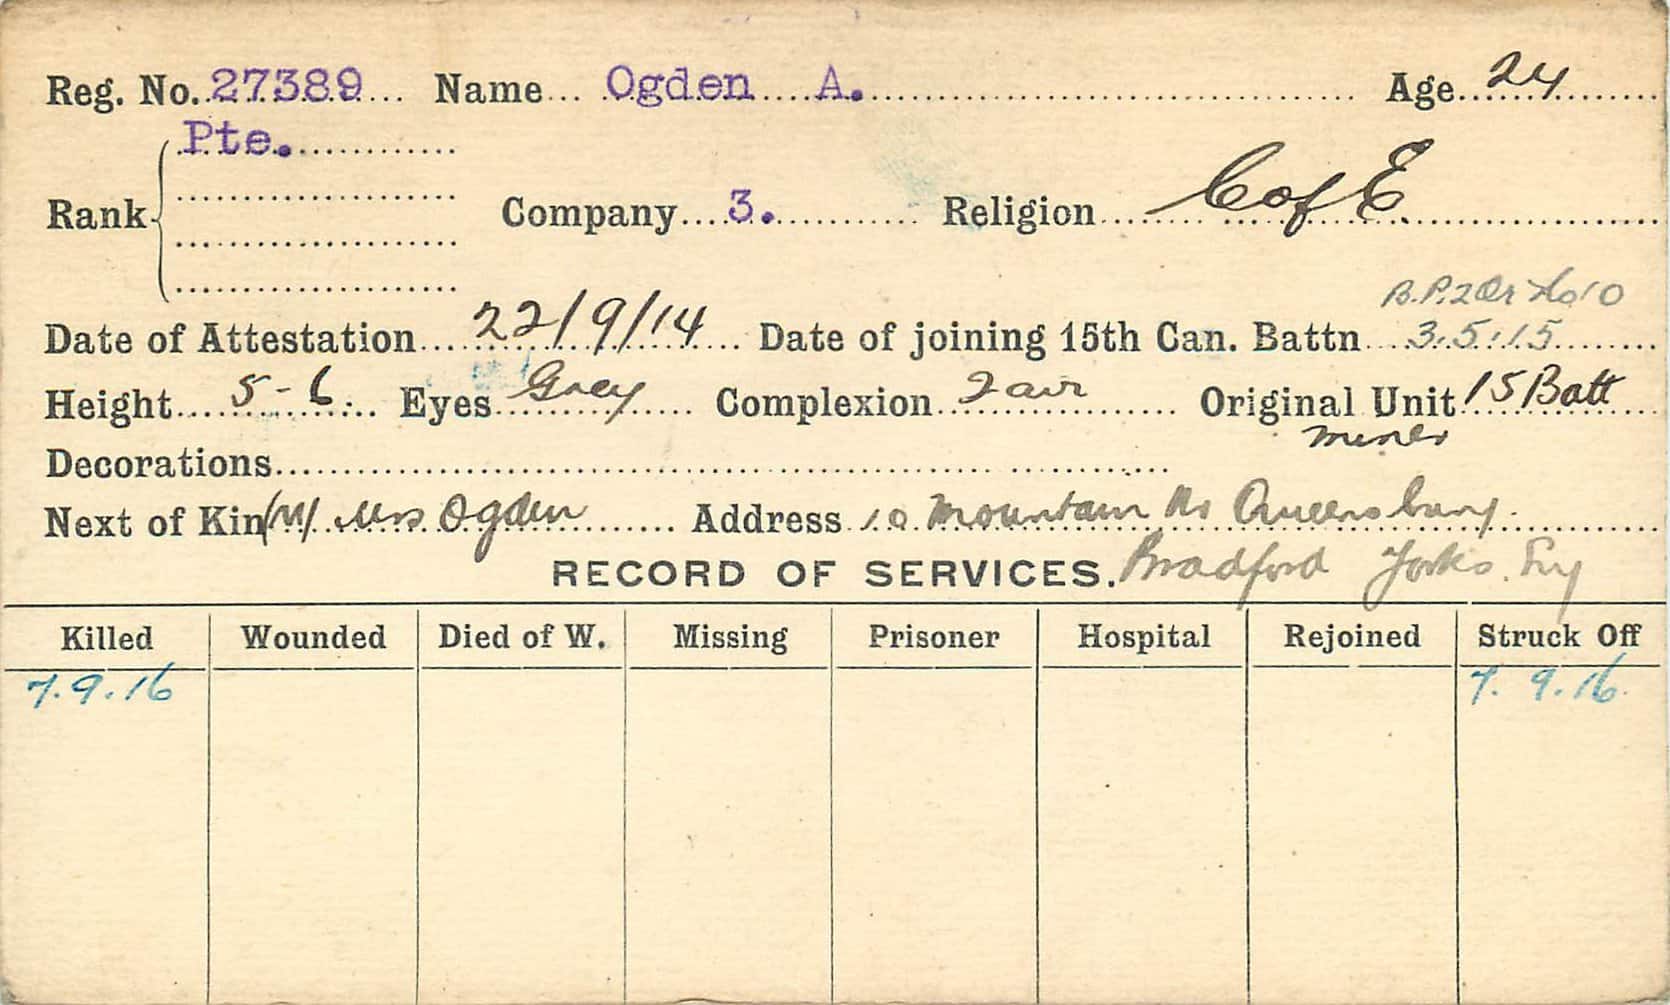 Reg. No. 27389 Name Ogden A. Age 24
Pte.
Rank Company 3. Religion C of E.
B.P.2 Or No 10
Date of Attestation 22/9/14 Date of joining 15th Can. Battn 3.5.15
Height 5-6 Eyes Grey Complexion Fair Original Unit 15 Batt
miner
Decorations
Next of Kin Mrs Ogden Address 10 Mountain Queensbury.
RECORD OF SERVICES. Bradford Yorks.
Killed Wounded Died of W. Missing Prisoner Hospital Rejoined Struck Off
7.9.16 7.9.16.